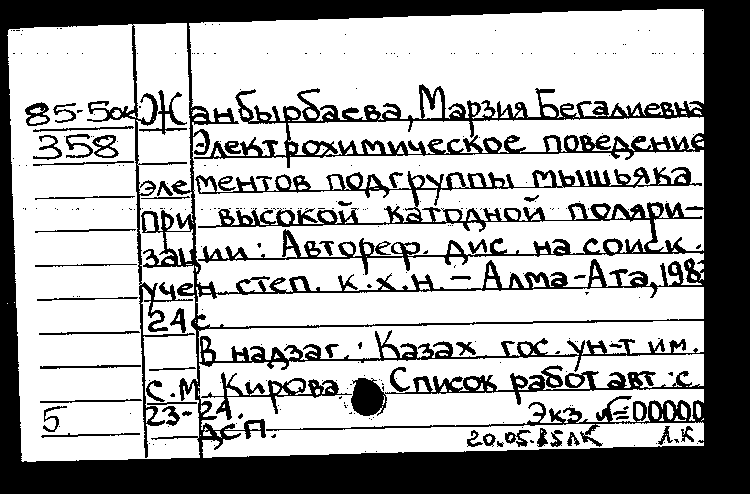 85-5ок Жанбырбаева, Марзия Бегалиевна
358 Электрохимическое поведение
элементов подгруппы мышьяка
при высокой катодной поляри-
зации: Автореф. дис. на соиск.
учен. степ. к.х.н. - Алма-Ата, 1983
24 с.
В надзаг.: Казах гос. ун-т им.
С.М. Кирова Список работ авт.: с.
5 23-24. Экз. №00000
ДСП.
20.05.85ЛК Л.К.